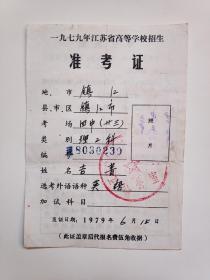 一九七九年江苏省高等学校招生
准考证
地、市 镇江
县、市、区 镇江市
考场 四中(廿三)
类别 理工科
编号 8030230
姓名 吉菁
选考外语语种 英语
加试科目
照片
发证日期：1979年6月15日
(此证盖章后代报名费伍角收据)